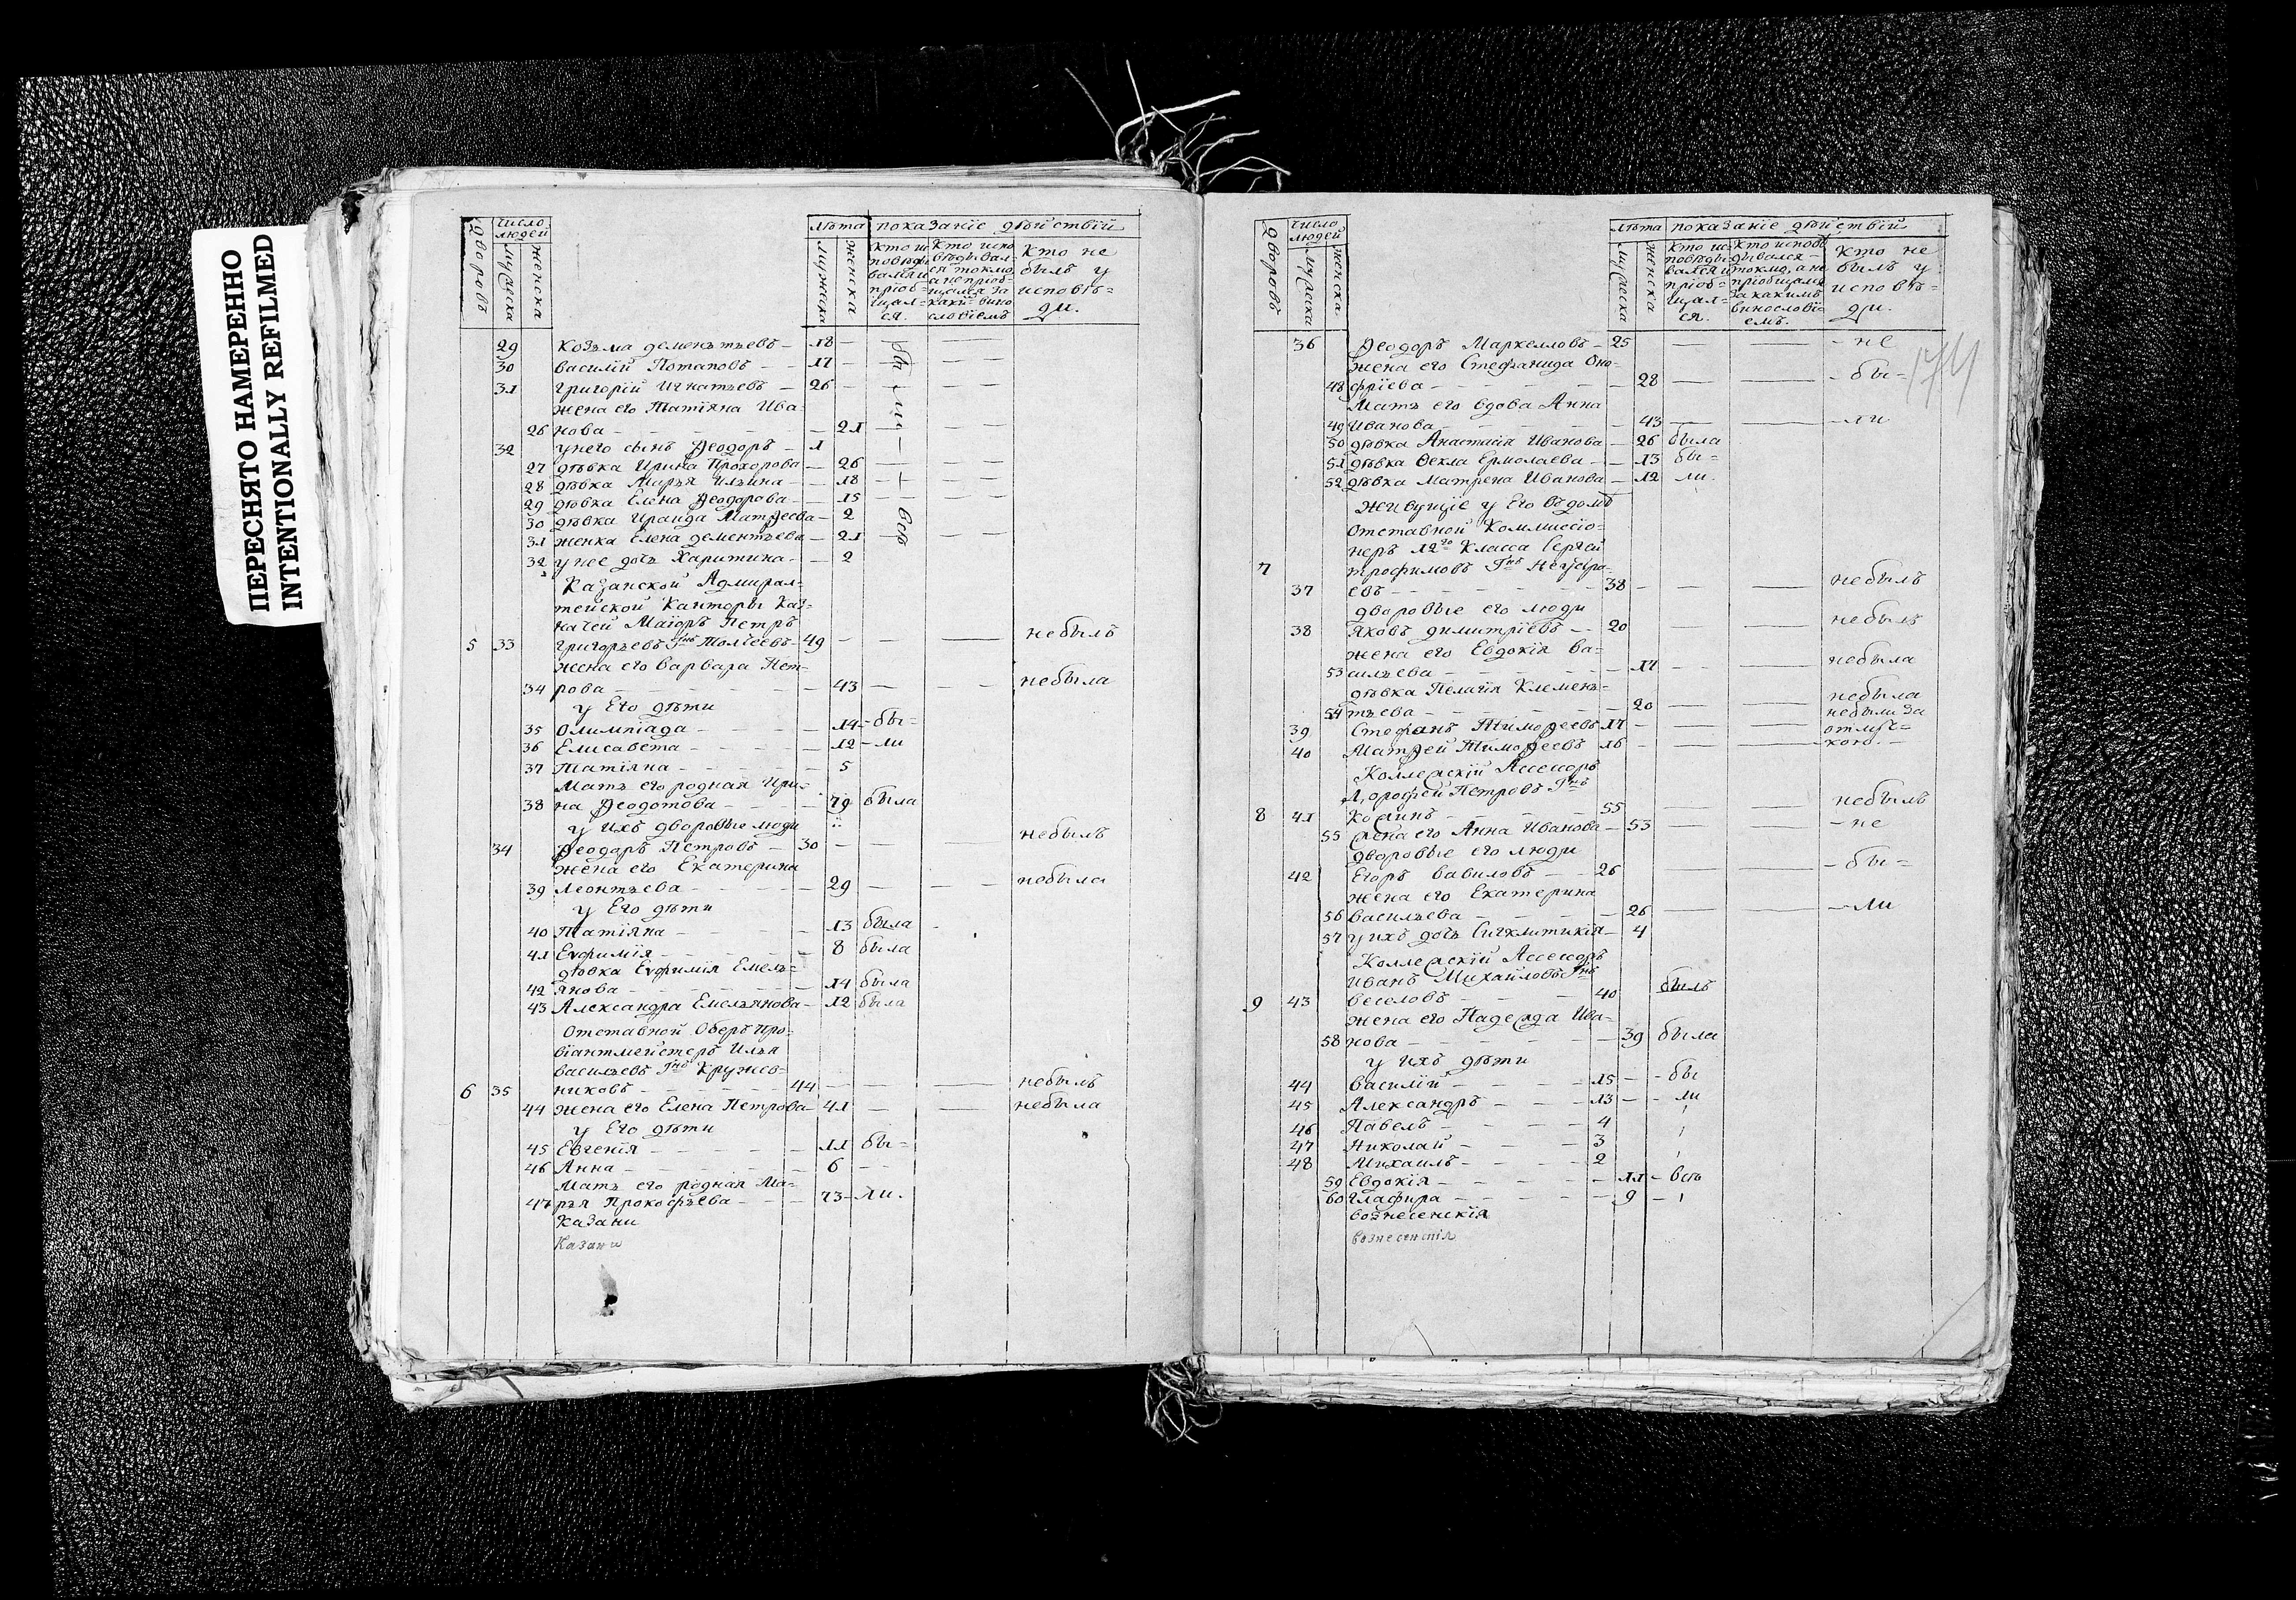 ПЕРЕСНЯТО НАМЕРЕННО
INTENTIONALLY REFILMED
дворовъ
число людей
мужеска
женска
лѣта
показанїе дѣйствїй
мужеска
женска
кто исповѣдывался и прїобщался.
кто исповѣдывался токмо, а не прїобщался за какимъ винословїемъ
кто не былъ у исповѣди.
29 козьма дементьевъ — 18 —
30 василїй Потаповъ — — 17 —
31 григорїй Игнатьевъ — 26 —
жена его Татїяна Ива=
26 нова — — 21
32 у него сынъ Ѳеодоръ — 1
27 дѣвка Ирина Прохорова — 26
28 дѣвка Марья Ильина — 18
29 дѣвка Елена Ѳеодорова — 15
30 дѣвка Ираида Матѳеева — 2
31 женка Елена дементьева — 21
32 у нее дочь Харитина — 2
бы ли всѣ
Казанской Адмирал=
тейской Канторы Каз=
начей Маїоръ Петръ
5 33 григорьевъ Гнъ Толмеевъ — 49 — — — небылъ
жена его варвара Пет=
34 рова — — 43 — — небыла
у Его дѣти
35 Олимпїада — — 14 — бы=
36 Елисавета — — 12 — ли
37 Татїяна — — 5
Мать его родная Ири=
38 на Ѳеодотова — — 79 была
у ихъ дворовые люди
34 Ѳеодоръ Петровъ — 30 — — — небылъ
жена его Екатерина
39 Леонтьева — — 29 — — небыла
у Его дѣти
40 Татїяна — — 13 была
41 Евфимїя — — 8 была
дѣвка Евфимїя Емель=
42 янова — — 14 была
43 Александра Емельянова — 12 была
Отставной Оберъ Про=
вїантмейстеръ Илья
васильевъ Гнъ Кружев=
6 35 никовъ — — 44 — — — небылъ
44 жена его Елена Петрова — 41 — — небыла
у Его дѣти
45 Евгенїя — — 11 бы=
46 Анна — — 6 — —
Мать его родная Ма=
47 рья Прокофьева — — 73 — ли.
Казани
Казани
дворовъ
число людей
мужеска
женска
лѣта
показанїе дѣйствїй
мужеска
женска
кто исповѣдывался и прїобщался.
кто исповѣдывался токмо, а не прїобщался за какимъ винословїемъ.
кто не былъ у исповѣди.
174
36 Ѳеодоръ Маркелловъ — 25 — — — не
жена его Стефанида Оно=
48 фрїева — — 28 — — — бы=
Мать его вдова Анна
49 Иванова — — 43 — — — ли
50 дѣвка Анастасїя Иванова — 26 была
51 дѣвка Ѳекла Ермолаева — 13 бы=
52 дѣвка Матрена Иванова — 12 ли.
Живущїе у Его въ домѣ
Отставной Коммиссїо=
неръ 12го Класса Сергей
7 трофимовъ Гнъ
37 евъ — — 38 — — — небылъ
дворовые его люди
38 Яковъ димитрїевъ — 20 — — — небылъ
жена его Евдокїя ва=
53 сильева — — 17 — — небыла
дѣвка Пелагїя Клемен=
54 тьева — — 20 — — небыла
39 Стефанъ Тимоѳеевъ 17 — — — небыли за
отлуч=
40 Матѳей Тимоѳеевъ 16 — — — кою. —
Коллежскїй Ассесоръ
дорофей Петровъ Гнъ
8 41 Кожинъ — — 55 — — — небылъ
55 жена его Анна Иванова — 53 — — — не
дворовые его люди
42 Егоръ вавиловъ — — 26 — — — бы=
жена его Екатерина
56 васильева — — 26 — — — ли
57 у ихъ дочь Сигклитикїя — 4
Коллежскїй Ассесоръ
Иванъ Михайловъ Гнъ
9 43 веселовъ — — 40 былъ
жена его Надежда Ива=
58 нова — — 39 была
у Ихъ дѣти
44 василїй — — 15 — — бы
45 Александръ — — 13 — — ли
46 Павелъ — — 4
47 Николай — — 3
48 Михаилъ — — 2
59 Евдокїя — — 11 — всѣ
60 глафира — — 9 —
вознесенскїя
вознесенскїя